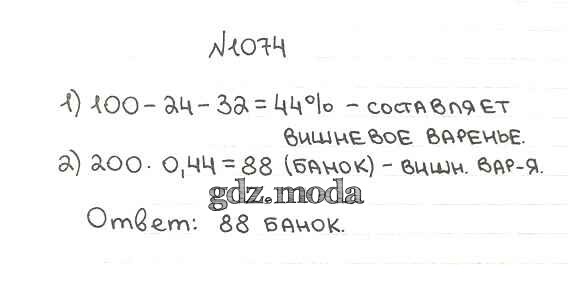 №1074
1) 100 - 24 - 32 = 44% - составляет
вишневое варенье.
2) 200 · 0,44 = 88 (банок) - вишн. вар-я.
gdz.moda
Ответ: 88 банок.